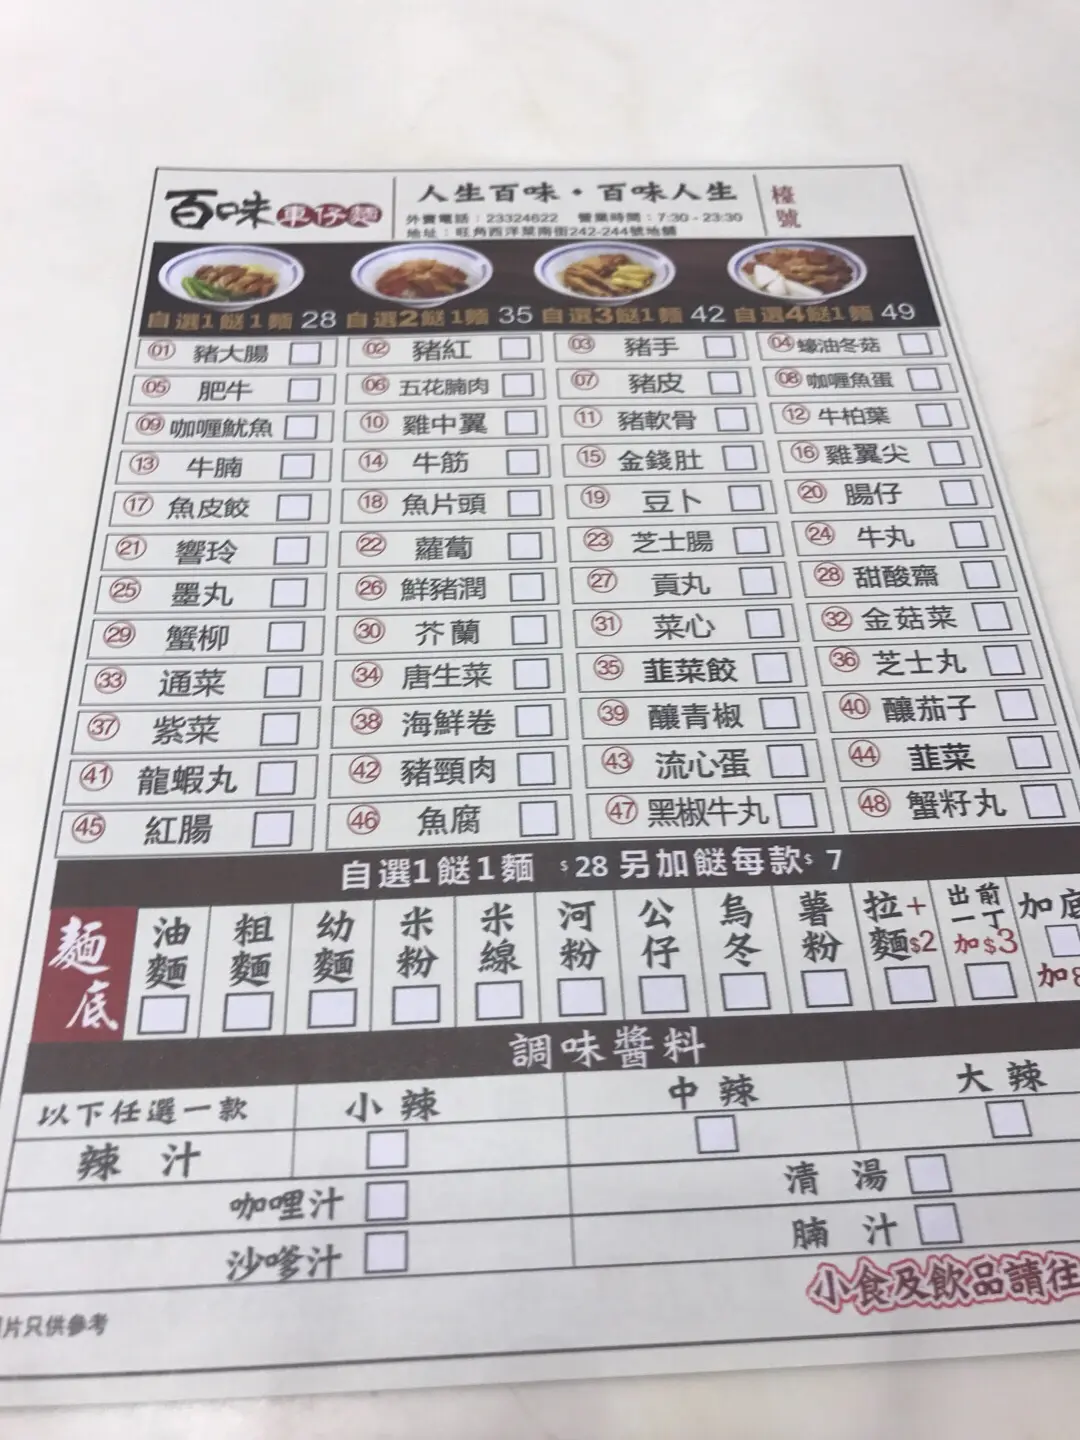 百味 車仔麵
人生百味・百味人生
外賣電話：23324622 營業時間：7:30 - 23:30
地址：旺角西洋菜南街242-244號地舖
檯號
自選1餸1麵 28 自選2餸1麵 35 自選3餸1麵 42 自選4餸1麵 49
01 豬大腸 02 豬紅 03 豬手 04 蠔油冬菇
05 肥牛 06 五花腩肉 07 豬皮 08 咖喱魚蛋
09 咖喱魷魚 10 雞中翼 11 豬軟骨 12 牛柏葉
13 牛腩 14 牛筋 15 金錢肚 16 雞翼尖
17 魚皮餃 18 魚片頭 19 豆卜 20 腸仔
21 響玲 22 蘿蔔 23 芝士腸 24 牛丸
25 墨丸 26 鮮豬潤 27 貢丸 28 甜酸齋
29 蟹柳 30 芥蘭 31 菜心 32 金菇菜
33 通菜 34 唐生菜 35 韮菜餃 36 芝士丸
37 紫菜 38 海鮮卷 39 釀青椒 40 釀茄子
41 龍蝦丸 42 豬頸肉 43 流心蛋 44 韮菜
45 紅腸 46 魚腐 47 黑椒牛丸 48 蟹籽丸
自選1餸1麵 $28 另加餸每款$ 7
麵底 油麵 粗麵 幼麵 米粉 米線 河粉 公仔 烏冬 薯粉 拉麵+$2 出前一丁 加$3 加底 加
調味醬料
以下任選一款 小辣 中辣 大辣
辣汁
咖哩汁 清湯
沙嗲汁 腩汁
小食及飲品請往
片只供參考